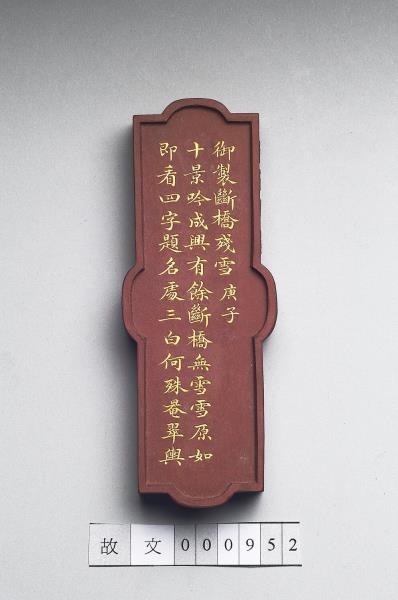 御製斷橋殘雪庚子
十景吟成興有餘斷橋無雪雪原如
即看四字題名處三白何殊菴翠輿
故文000952